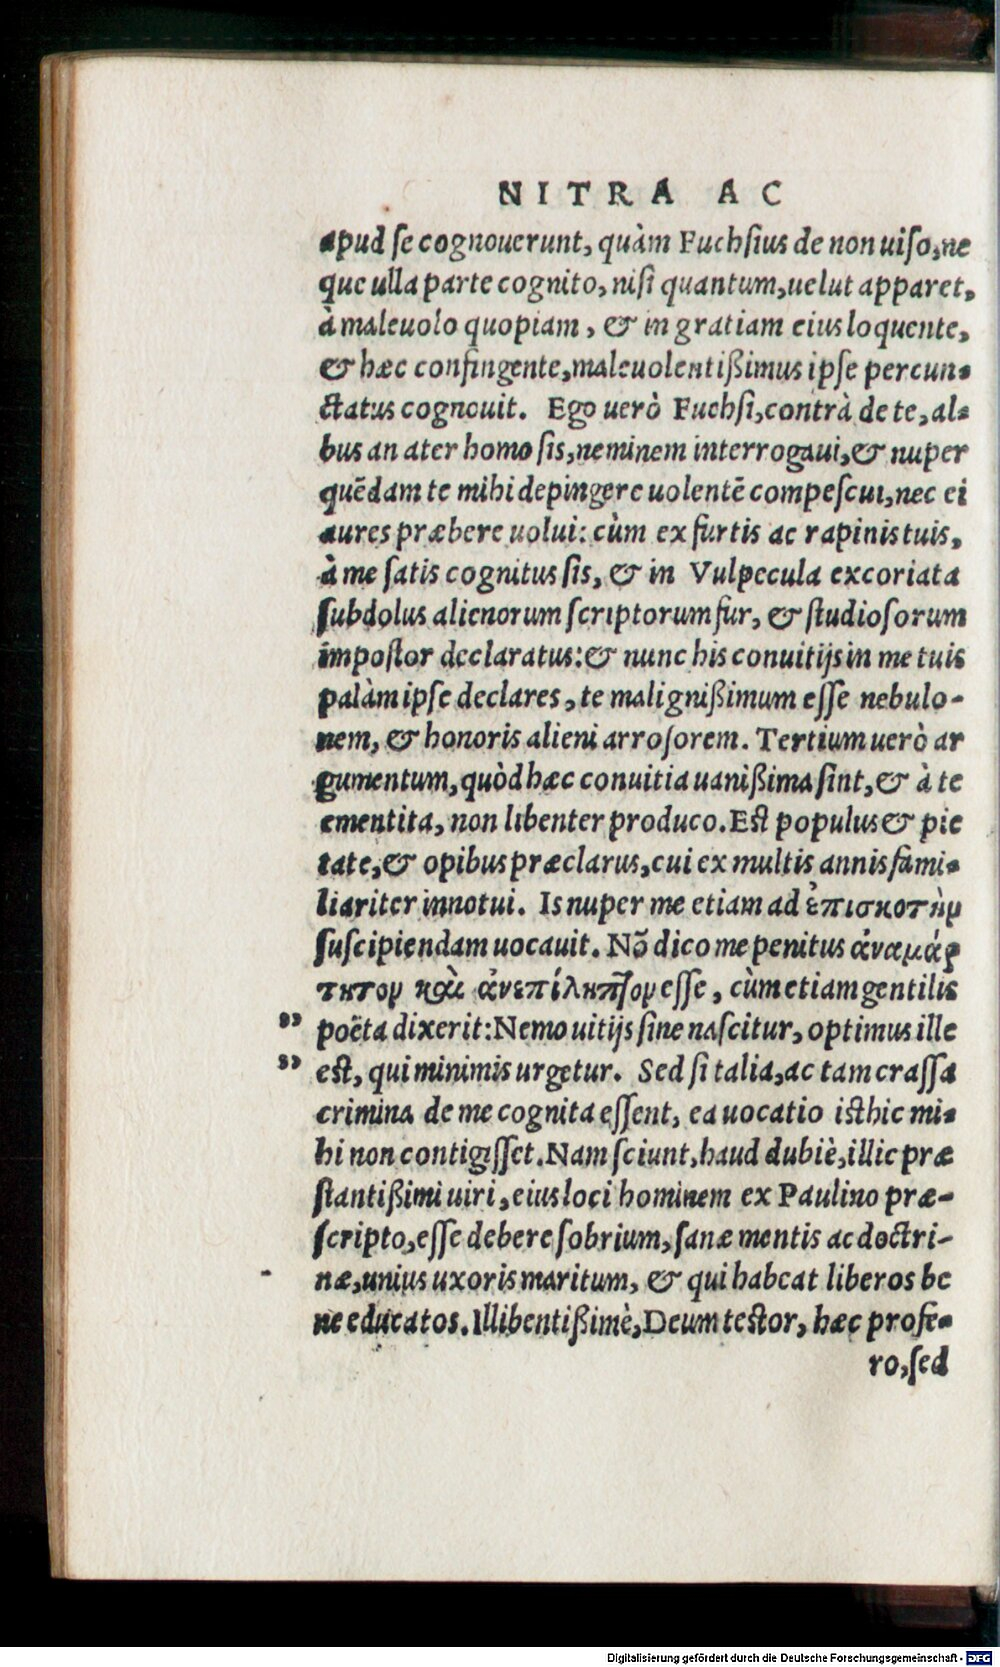 NITRA AC
apud se cognouerunt, quàm Fuchsius de non uiso, ne
que ulla parte cognito, nisi quantum, uelut apparet,
à maleuolo quopiam, & in gratiam eius loquente,
& hæc confingente, maleuolentißimus ipse percun-
ctatus cognouit. Ego uerò Fuchsi, contrà de te, al-
bus an ater homo sis, neminem interrogaui, & nuper
quēdam te mihi depingere uolentē compescui, nec ei
aures præbere uolui: cùm ex furtis ac rapinis tuis,
à me satis cognitus sis, & in Vulpecula excoriata
subdolus alienorum scriptorum fur, & studiosorum
impostor declaratus: & nunc his conuitijs in me tuis
palàm ipse declares, te malignißimum esse nebulo-
nem, & honoris alieni arrosorem. Tertium uerò ar
gumentum, quòd hæc conuitia uanißima sint, & à te
ementita, non libenter produco. Est populus & pie
tate, & opibus præclarus, cui ex multis annis fami-
liariter innotui. Is nuper me etiam ad ἐπισκοτὴν
suscipiendam uocauit. Nō dico me penitus ἀναμάρ
τητον καὶ ἀνεπίληπτον esse, cùm etiam gentilis
" poëta dixerit: Nemo uitijs sine nascitur, optimus ille
" est, qui minimis urgetur. Sed si talia, ac tam crassa
crimina de me cognita essent, ea uocatio isthic mi-
hi non contigisset. Nam sciunt, haud dubiè, illic præ
stantißimi uiri, eius loci hominem ex Paulino præ-
scripto, esse debere sobrium, sanæ mentis ac doctri-
næ, unius uxoris maritum, & qui habeat liberos be
ne educatos. Illibentißimè, Deum testor, hæc profe-
ro, sed
Digitalisierung gefördert durch die Deutsche Forschungsgemeinschaft - DFG